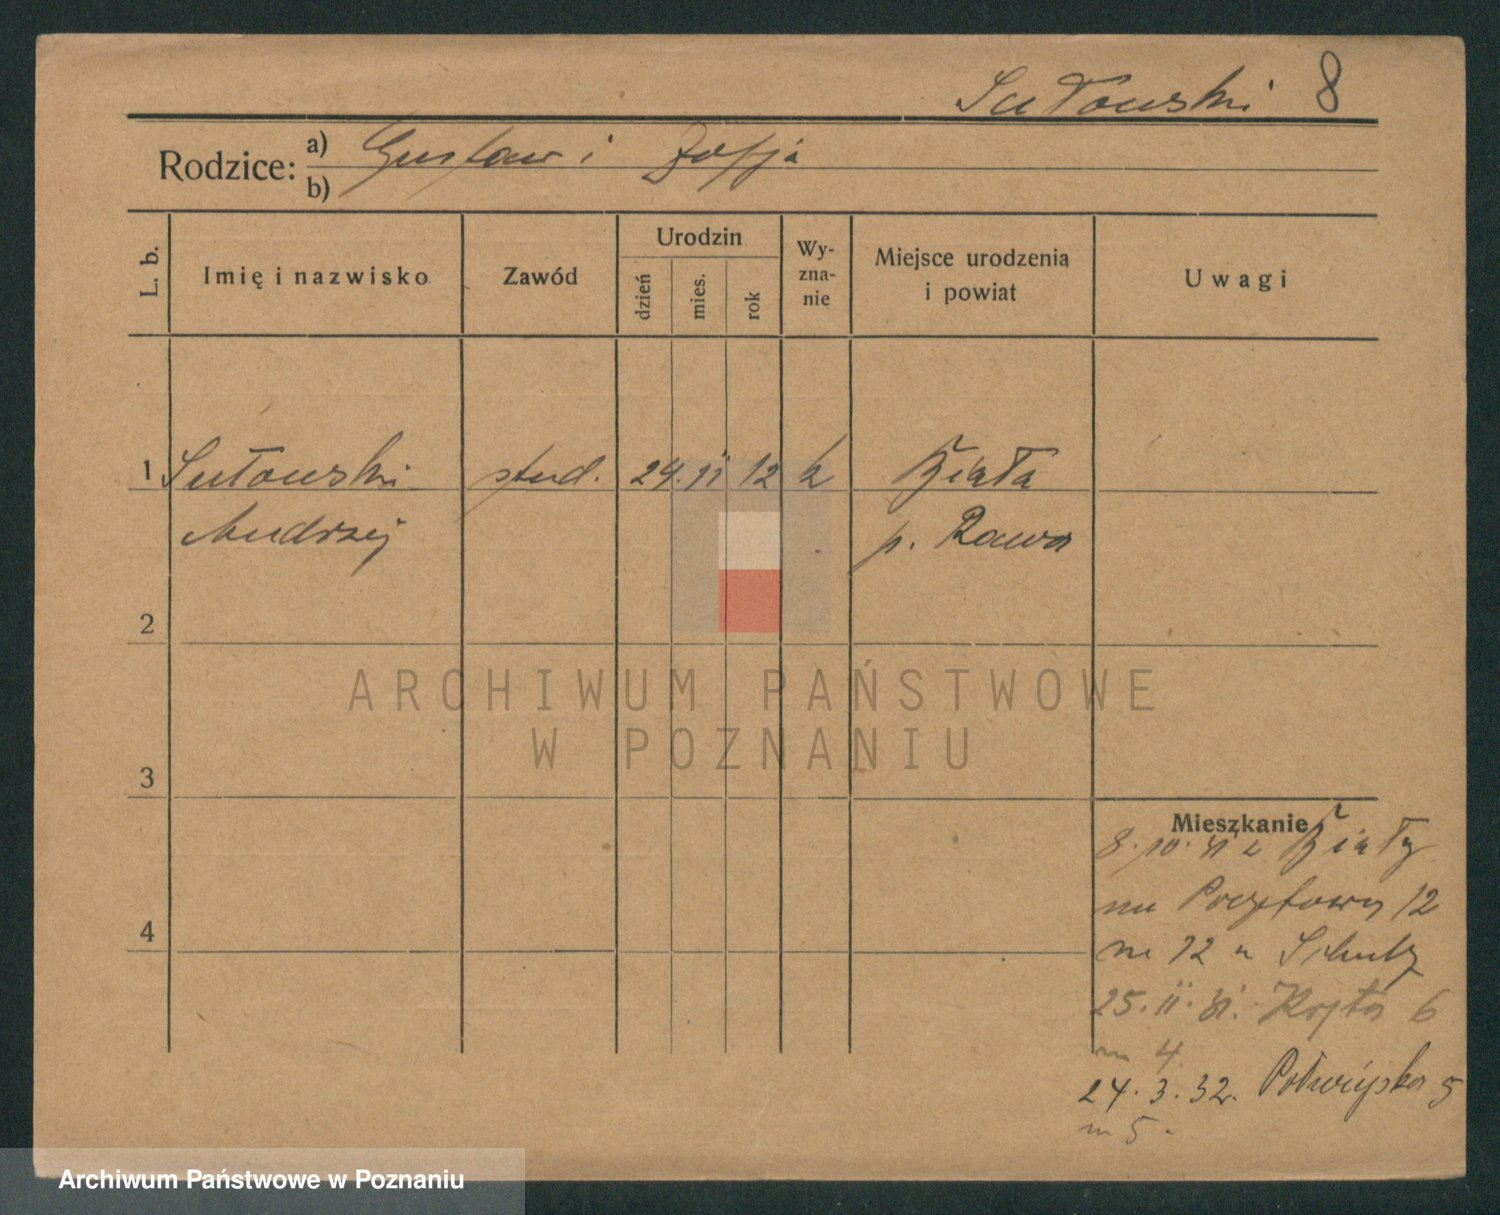 Sułowski 8
Rodzice: a) Gustaw i Zofja
b)
L. b. Imię i nazwisko Zawód Urodzin dzień mies. rok Wy-zna-nie Miejsce urodzenia i powiat Uwagi
1 Sułowski stud. 24. 11 12 k Biała
Andrzej p. Rawa
2
ARCHIWUM PAŃSTWOWE
W POZNANIU
3
4
Mieszkanie
8. 10. 31 z Biały
na Pocztową 12
m 12 u Schulz
25. 11. 31. 6
m 4.
24. 3. 32. 5
m 5.
Archiwum Państwowe w Poznaniu